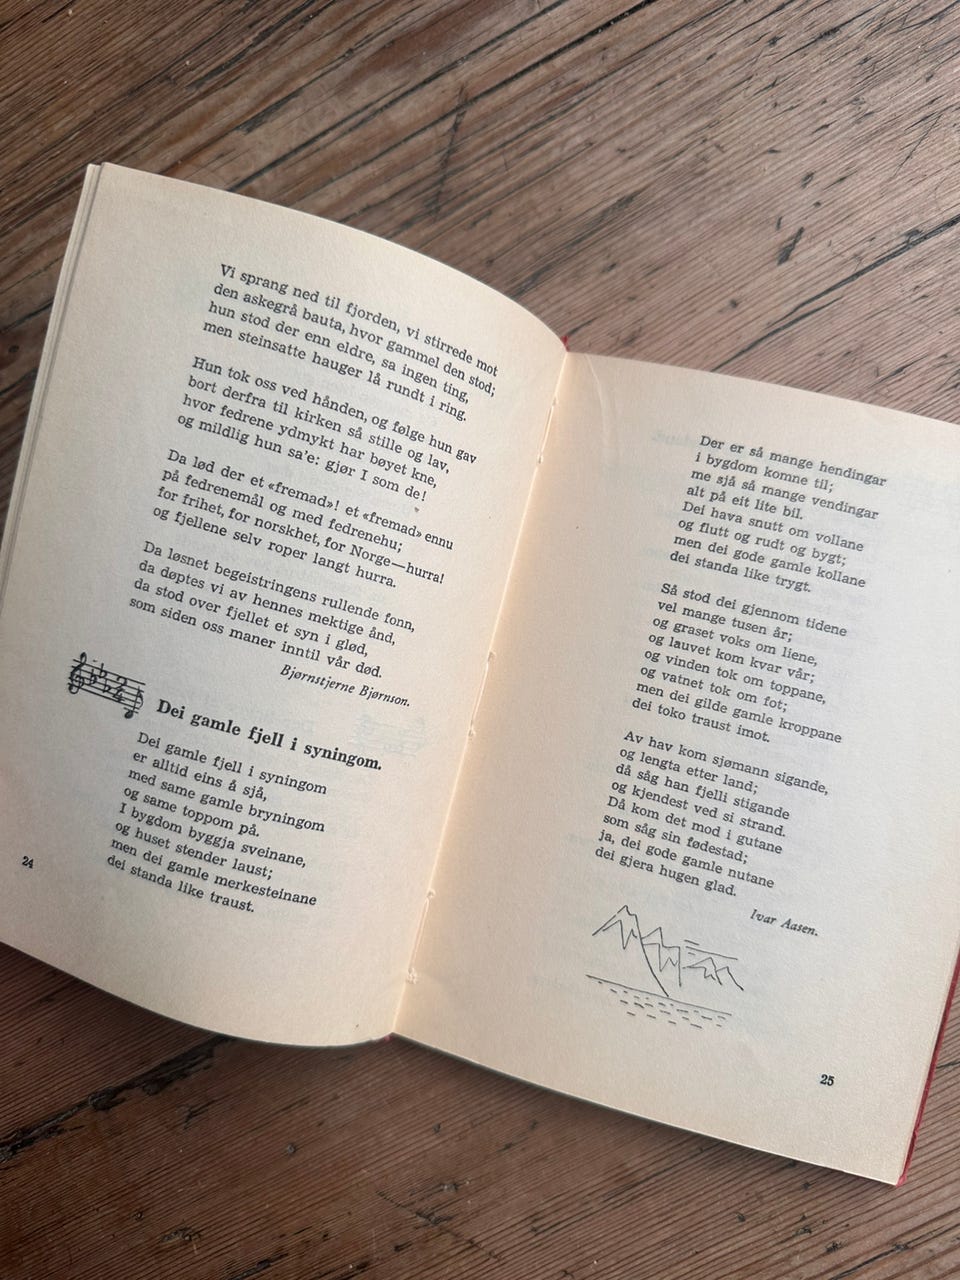 Vi sprang ned til fjorden, vi stirrede mot
den askegrå bauta, hvor gammel den stod;
hun stod der enn eldre, sa ingen ting,
men steinsatte hauger lå rundt i ring.
Hun tok oss ved hånden, og følge hun gav
bort derfra til kirken så stille og lav,
hvor fedrene ydmykt har bøyet kne,
og mildlig hun sa'e: gjør I som de!
Da lød der et «fremad»! et «fremad» ennu
på fedrenemål og med fedrenehu;
for frihet, for norskhet, for Norge—hurra!
og fjellene selv roper langt hurra.
Da løsnet begeistringens rullende fonn,
da døptes vi av hennes mektige ånd,
da stod over fjellet et syn i glød,
som siden oss maner inntil vår død.
Bjørnstjerne Bjørnson.
Dei gamle fjell i syningom.
Dei gamle fjell i syningom
er alltid eins å sjå,
med same gamle bryningom
og same toppom på.
I bygdom byggja sveinane,
og huset stender laust;
men dei gamle merkesteinane
dei standa like traust.
24
Der er så mange hendingar
i bygdom komne til;
me sjå så mange vendingar
alt på eit lite bil.
Dei hava snutt om vollane
og flutt og rudt og bygt;
men dei gode gamle kollane
dei standa like trygt.
Så stod dei gjennom tidene
vel mange tusen år;
og graset voks om liene,
og lauvet kom kvar vår;
og vinden tok om toppane,
og vatnet tok om fot;
men dei gilde gamle kroppane
dei toko traust imot.
Av hav kom sjømann sigande,
og lengta etter land;
då såg han fjelli stigande
og kjendest ved si strand.
Då kom det mod i gutane
som såg sin fødestad;
ja, dei gode gamle nutane
dei gjera hugen glad.
Ivar Aasen.
25